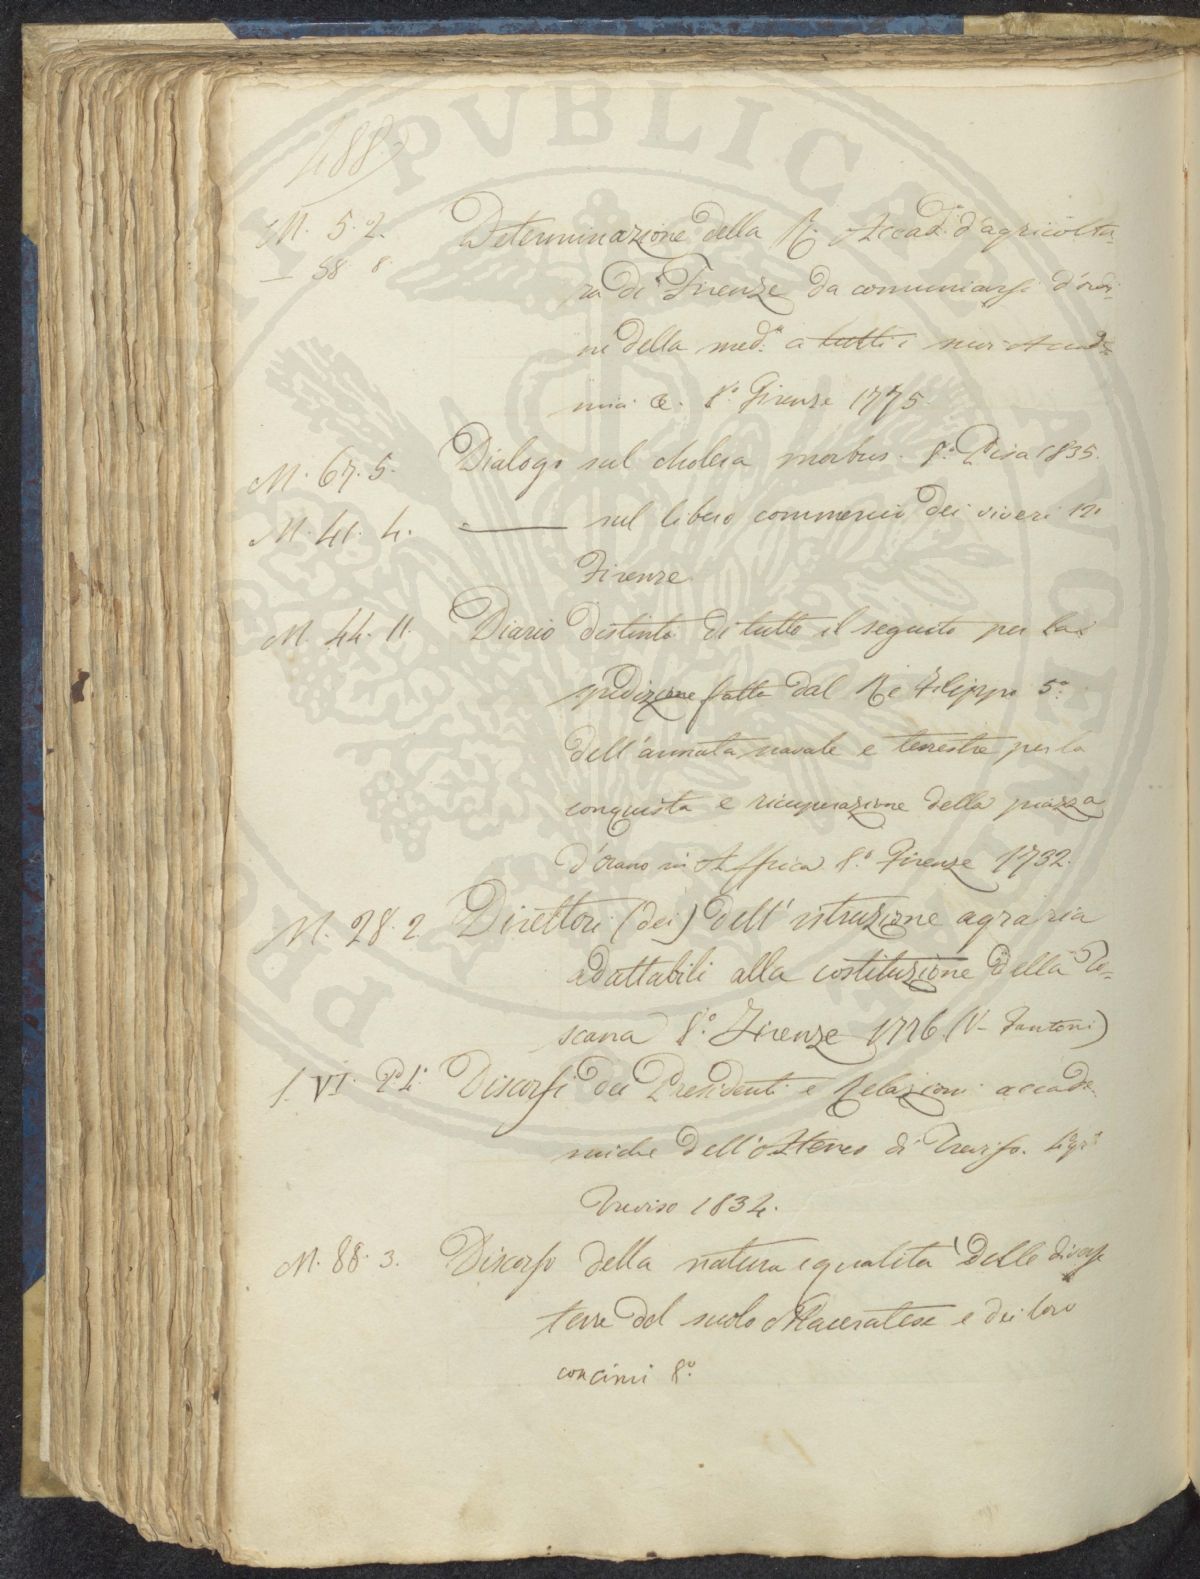 488
M. 5. 2. Determinazione della R. Accad.a d'agricoltu-
— 58 8. ra di Firenze da comunicarsi d'ordi-
ne della med.a a tutti i suoi Accade-
mici &. 8.o Firenze 1775.
M. 67. 5. Dialogo sul cholera morbus. 8.o Pisa 1835.
M. 41. 4. —— sul libero commercio dei viveri in
Firenze
M. 44. 11. Diario distinto di tutto il seguito per la
spedizione fatta dal Re Filippo 5.o
dell'armata navale e terrestre per la
conquista e ricuperazione della piazza
d'Orano in Affrica 8.o Firenze 1732.
M. 28. 2. Direttori (dei) dell'istruzione agraria
adattabili alla costituzione della To-
scana 8.o Firenze 1776 (V. Fantoni)
1. VI. Discorsi dei Presidenti e Relazioni accade-
miche dell'Ateneo di Treviso.
Treviso 1834.
M. 88. 3. Discorso della natura e qualità delle diverse
terre del suolo Maceratese e dei loro
concimi 8.o
PVBLICAE